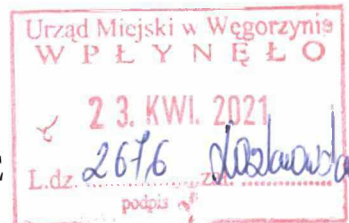 Urząd Miejski w Węgorzynie
WPŁYNĘŁO
23. KWI. 2021
L.dz. 2676 zał.
podpis